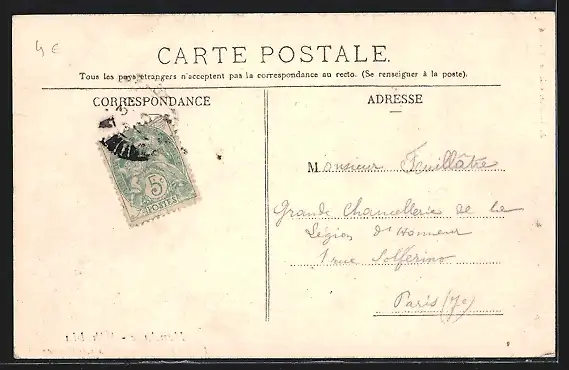 4 €
CARTE POSTALE.
Tous les pays étrangers n'acceptent pas la correspondance au recto. (Se renseigner à la poste).
CORRESPONDANCE
ADRESSE
5c
POSTES
Monsieur Feuillâtre
Grande Chancellerie de la
Légion d'Honneur
1 rue Solférino
Paris (7e)